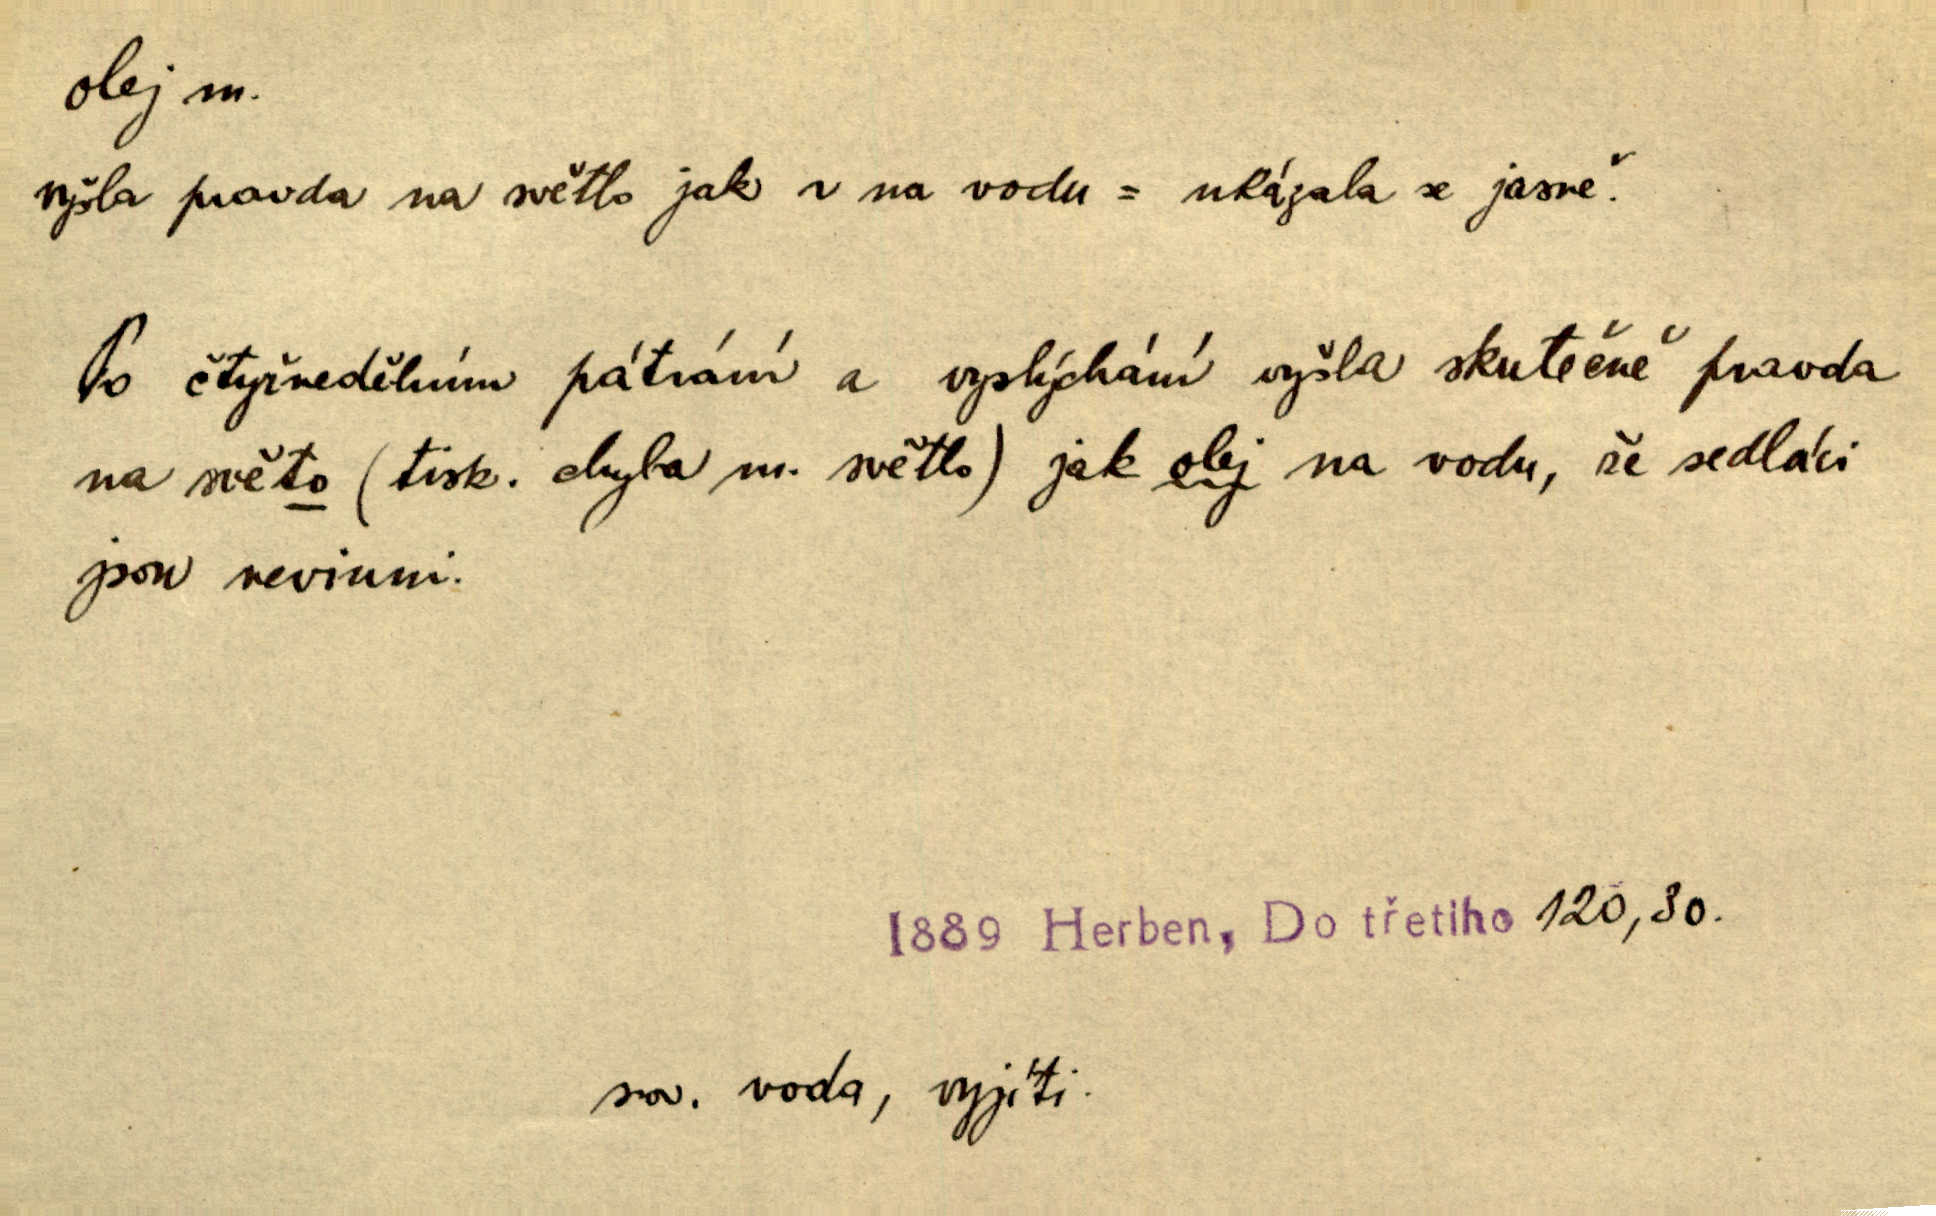 olej m.
vyšla pravda na světlo jak ~ na vodu = ukázala se jasně.
Po čtyřnedělním pátrání a vyslýchání vyšla skutečně pravda
na světo (tisk. chyba m. světlo) jak olej na vodu, že sedláci
jsou nevinni.
1889 Herben, Do třetiho 120,30.
srov. voda, vyjíti.